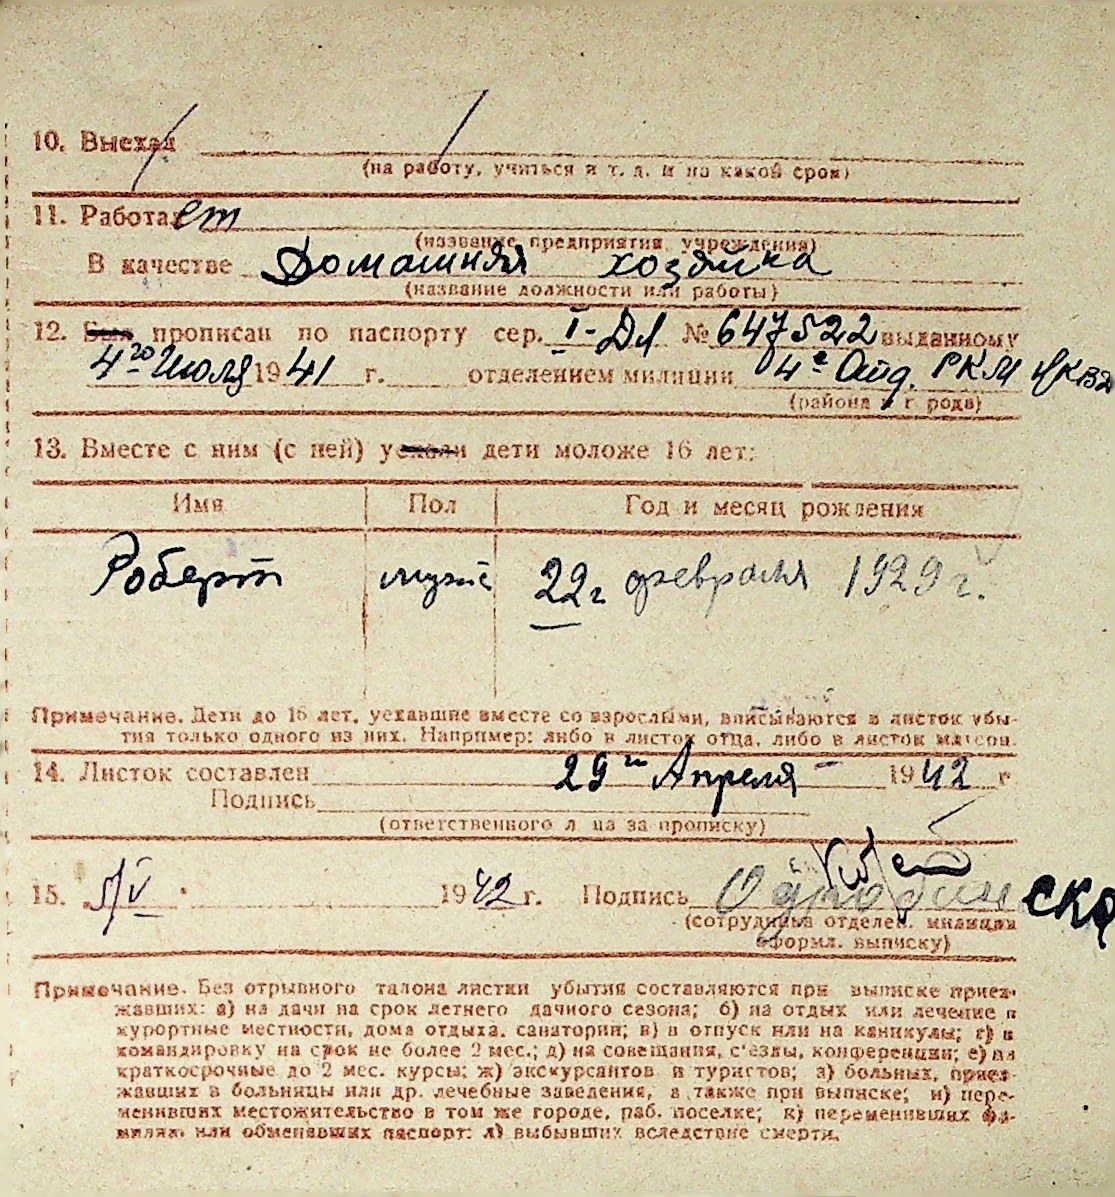 10. Выехал
(на работу, учиться и т. д. и на какой срок)
11. Работает
(название предприятия, учреждения)
В качестве Домашняя хозяйка
(название должности или работы)
12. Был прописан по паспорту сер. I-ДЛ № 647522 выданному
4го Июля 1941 г. отделением милиции 4е Отд. РКМ НКВД
(района и города)
13. Вместе с ним (с ней) уехали дети моложе 16 лет:
Имя Пол Год и месяц рождения
Роберт муж 22г февраля 1929 г.
Примечание. Дети до 16 лет, уехавшие вместе со взрослыми, вписываются в листок убы-
тия только одного из них. Например: либо в листок отца, либо в листок матери.
14. Листок составлен 29го Апреля 1942 г
Подпись
(ответственного лица за прописку)
15. 5/V 1942 г. Подпись
(сотрудника отделен. милиции
оформл. выписку)
Примечание. Без отрывного талона листки убытия составляются при выписке приез-
жавших: а) на дачи на срок летнего дачного сезона; б) на отдых или лечение в
курортные местности, дома отдыха, санатории; в) в отпуск или на каникулы; г) в
командировку на срок не более 2 мес.; д) на совещания, съезды, конференции; е) на
краткосрочные до 2 мес. курсы; ж) экскурсантов и туристов; з) больных, приез-
жавших в больницы или др. лечебные заведения, а также при выписке; и) пере-
менивших местожительство в том же городе, раб. поселке; к) переменивших фа-
милии или обменявших паспорт; л) выбывших вследствие смерти.